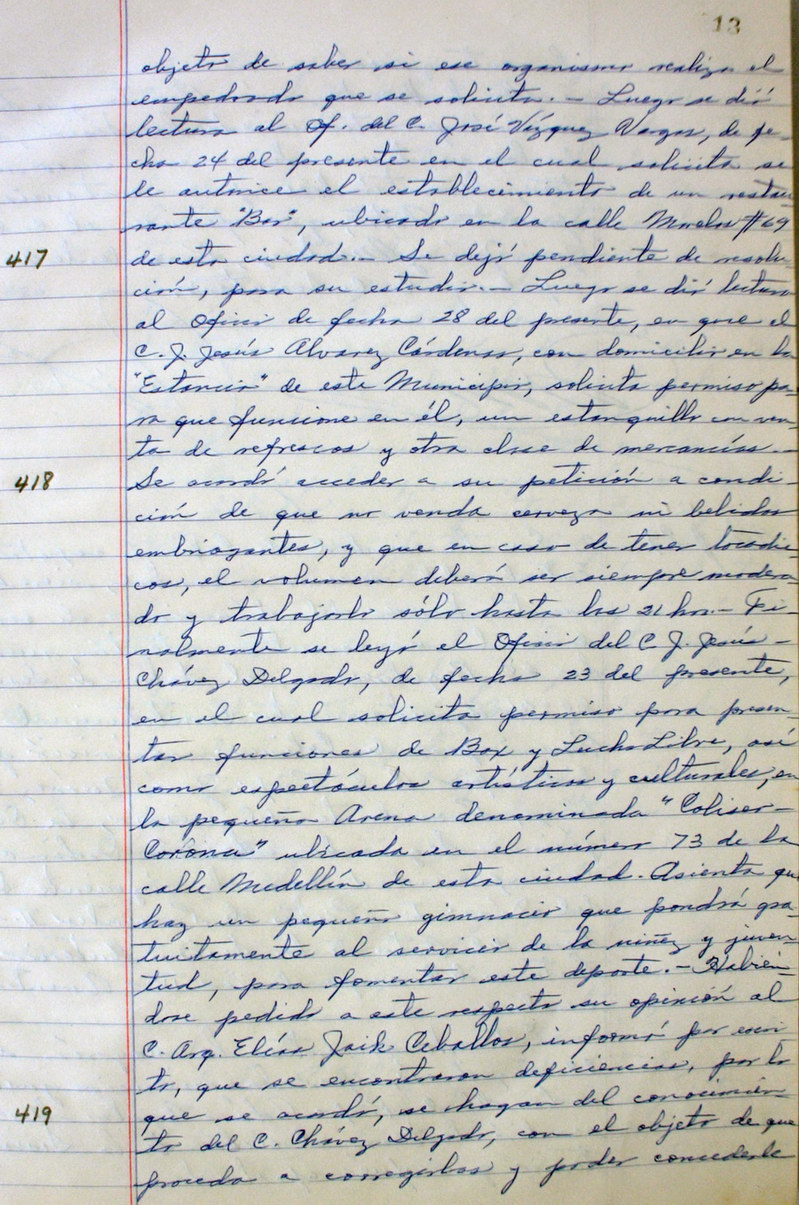 13
objeto de saber si ese organismo realiza el
empedrado que se solicita.- Luego se dió
lectura al Of. del C. José Vázquez Vargas, de fe-
cha 24 del presente en el cual solicita se
le autorice el establecimiento de un restau-
rante "Bar", ubicado en la calle Morelos #69
417 de esta ciudad.- Se dejó pendiente de resolu-
ción, para su estudio.- Luego se dió lectura
al Oficio de fecha 28 del presente, en que el
C. J. Jesús Alvarez Cárdenas, con domicilio en la
"Estancia" de este Municipio, solicita permiso pa-
ra que funcione en él, un estanquillo con ven-
ta de refrescos y otra clase de mercancías.-
418 Se acordó acceder a su petición a condi-
ción de que no venda cerveza ni bebidas
embriagantes, y que en caso de tener tocadis-
cos, el volumen deberá ser siempre modera-
do y trabajarlo sólo hasta las 21 hrs.- Fi-
nalmente se leyó el Oficio del C. J. Jesús -
Chávez Delgado, de fecha 23 del presente,
en el cual solicita permiso para presen-
tar funciones de Box y Lucha Libre, así
como espectáculos artísticos y culturales, en
la pequeña Arena denominada "Coliseo-
Corona" ubicada en el número 73 de la
calle Medellín de esta ciudad. Asienta que
hay un pequeño gimnacio que pondrá gra-
tuitamente al servicio de la niñez y juven-
tud, para fomentar este deporte.- Habién-
dose pedido a este respecto su opinión al
C. Arq. Elías Jaik Ceballos, informó por escri-
to, que se encontraron deficiencias, por lo
419 que se acordó, se hagan del conocimien-
to del C. Chávez Delgado, con el objeto de que
proceda a corregirlas y poder concederle